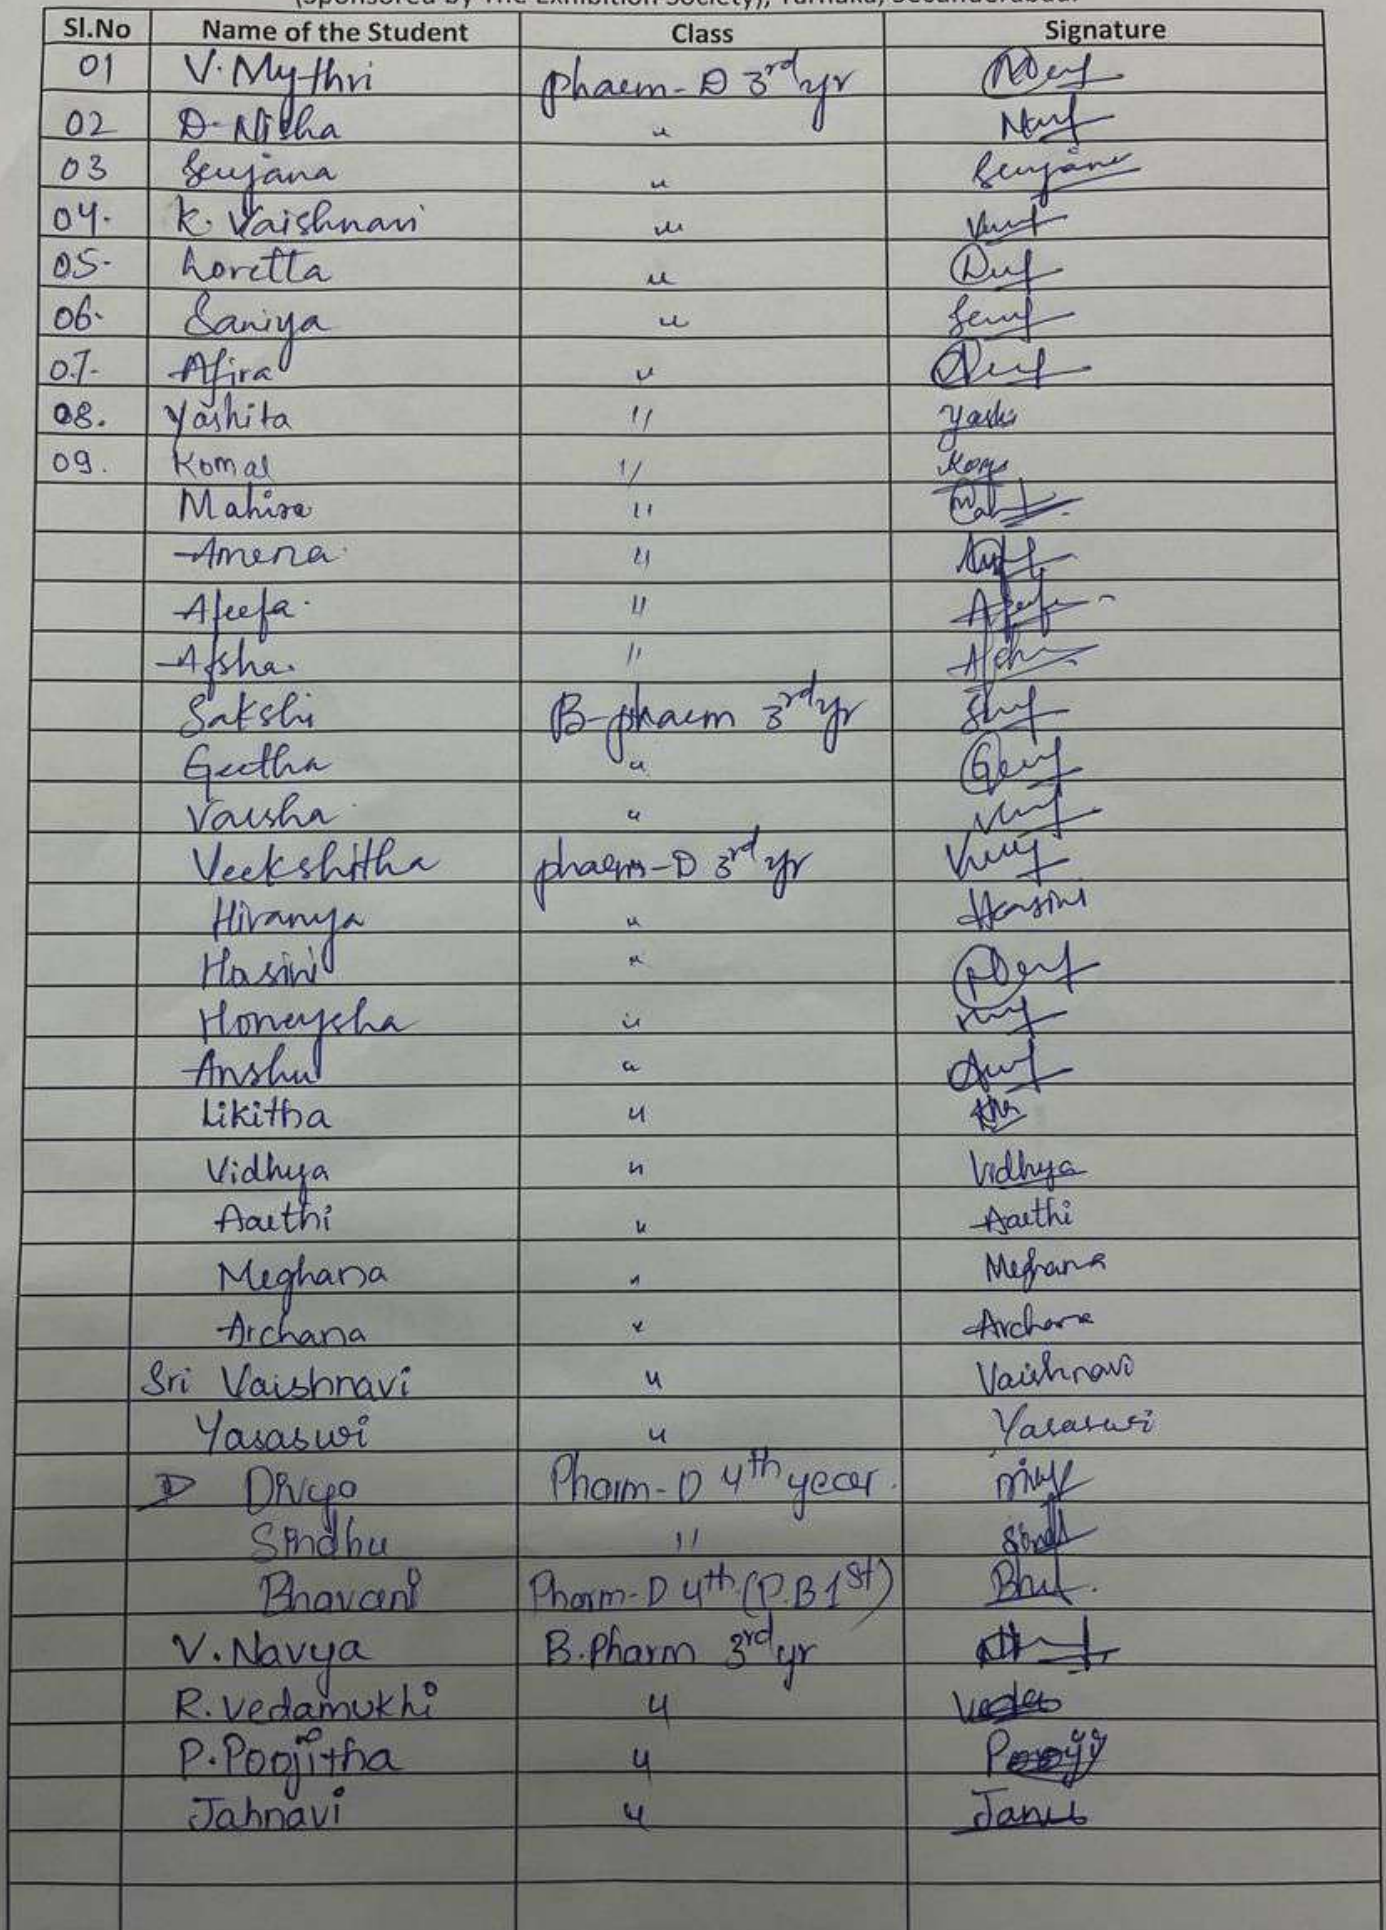 (Sponsored by The Exhibition Society), Tarnaka, Secunderabad.
Sl.No Name of the Student Class Signature
01 V. Mythri pharm-D 3rd yr
02 D. Nitha "
03 Srujana " Srujana
04. K. Vaishnavi "
05. Loretta "
06. Saniya "
07. Afira "
08. Yashita " Yashi
09. Komal "
Mahira "
Amena "
Afeefa. " Afeefa
Afsha. "
Sakshi B-pharm 3rd yr
Geetha "
Varsha "
Veekshitha pharm-D 3rd yr
Hiranya " Hasini
Hasini "
Honeysha "
Anshu "
Likitha "
Vidhya " Vidhya
Aarthi " Aarthi
Meghana " Meghana
Archana " Archana
Sri Vaishnavi " Vaishnavi
Yasaswi " Yasaswi
D Divya Pharm-D 4th year.
Sindhu "
Bhavani Pharm-D 4th (P.B 1st)
V. Navya B. Pharm 3rd yr
R. Vedamukhi "
P. Poojitha "
Jahnavi "